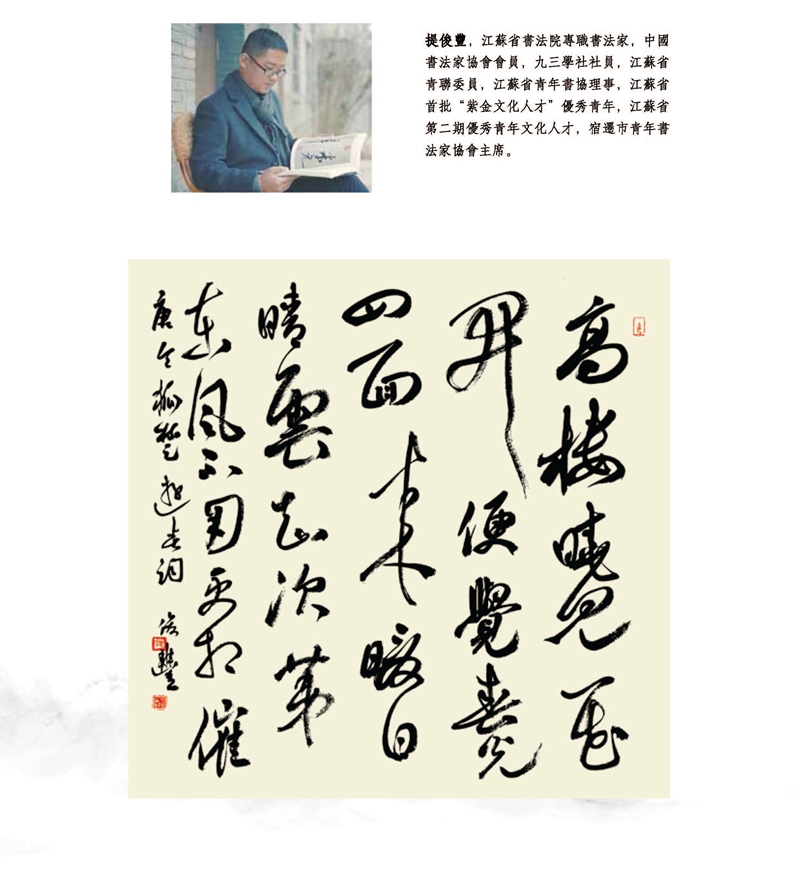 提俊豐，江蘇省書法院專職書法家，中國
書法家協會會員，九三學社社員，江蘇省
青聯委員，江蘇省青年書協理事，江蘇省
首批“紫金文化人才”優秀青年，江蘇省
第二期優秀青年文化人才，宿遷市青年書
法家協會主席。
高樓曉見一花
開便覺春光
四面來暖日
晴雲知次第
東風不用更相催
唐令狐楚遊春詞 俊豐